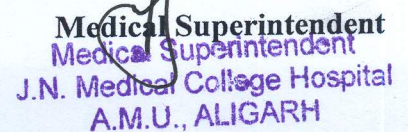 Medical Superintendent
Medical Superintendent
J.N. Medical College Hospital
A.M.U., ALIGARH